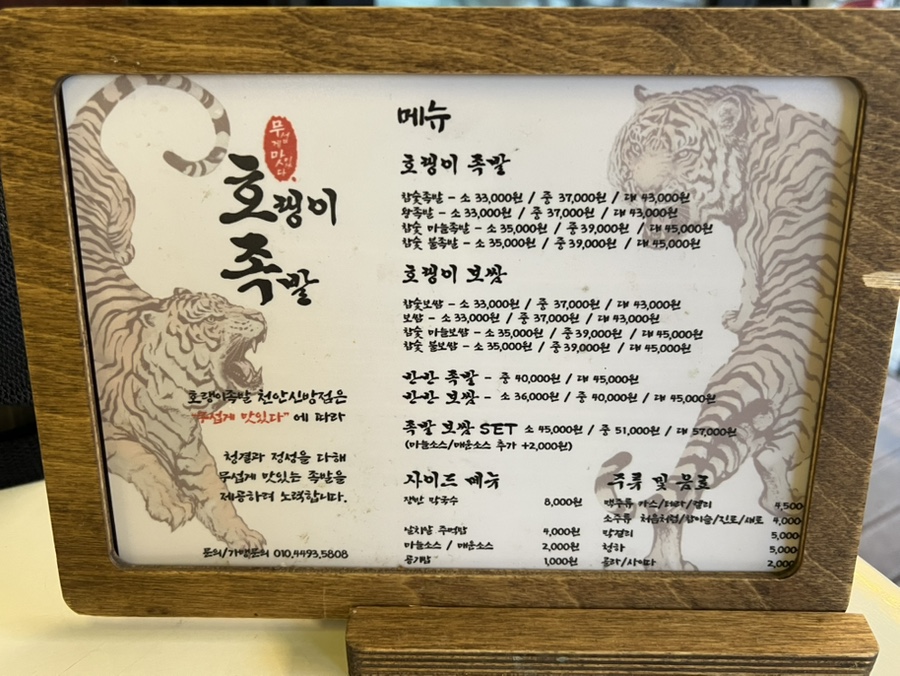 무섭게 맛있다.
호랭이
족발
호랭이족발 천안신방점은
"무섭게 맛있다" 에 따라
청결과 정성을 다해
무섭게 맛있는 족발을
제공하려 노력합니다.
문의/가맹문의 010.4493.5808
메뉴
호랭이 족발
참숯족발 - 소 33,000원 / 중 37,000원 / 대 43,000원
왕족발 - 소 33,000원 / 중 37,000원 / 대 43,000원
참숯 마늘족발 - 소 35,000원 / 중 39,000원 / 대 45,000원
참숯 불족발 - 소 35,000원 / 중 39,000원 / 대 45,000원
호랭이 보쌈
참숯보쌈 - 소 33,000원 / 중 37,000원 / 대 43,000원
보쌈 - 소 33,000원 / 중 37,000원 / 대 43,000원
참숯 마늘보쌈 - 소 35,000원 / 중 39,000원 / 대 45,000원
참숯 불보쌈 - 소 35,000원 / 중 39,000원 / 대 45,000원
반반 족발 - 중 40,000원 / 대 45,000원
반반 보쌈 - 소 36,000원 / 중 40,000원 / 대 45,000원
족발 보쌈 SET 소 45,000원 / 중 51,000원 / 대 57,000원
(마늘소스/매운소스 추가 +2,000원)
사이드 메뉴
쟁반 막국수 8,000원
날치알 주먹밥 4,000원
마늘소스 / 매운소스 2,000원
공기밥 1,000원
주류 및 음료
맥주류 카스/테라/켈리 4,500
소주류 처음처럼/참이슬/진로/새로 4,000
막걸리 5,000
청하 5,000
콜라/사이다 2,000